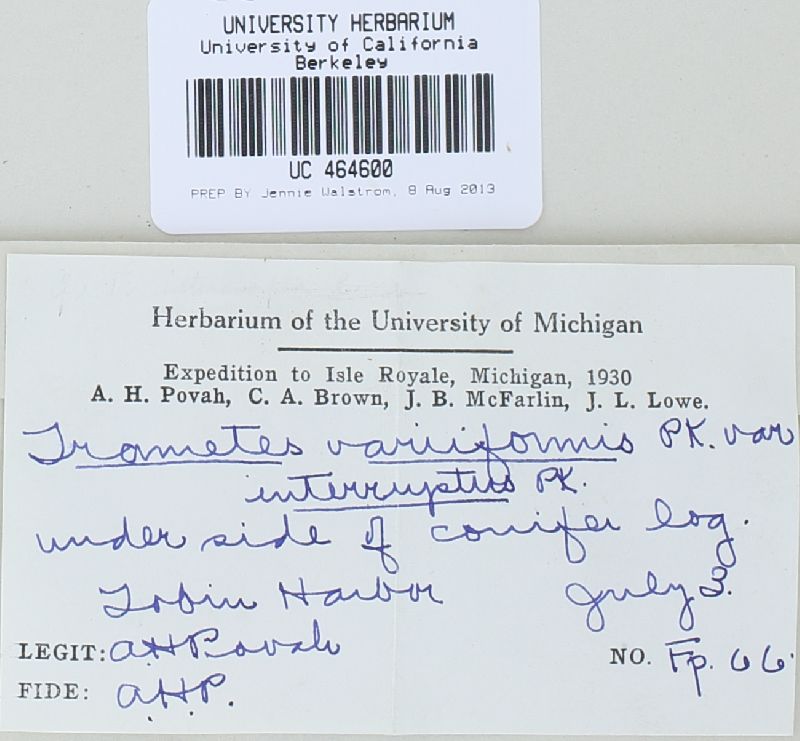 UNIVERSITY HERBARIUM
University of California
Berkeley
UC 464600
PREP BY Jennie Walstrom, 8 Aug 2013
Herbarium of the University of Michigan
Expedition to Isle Royale, Michigan, 1930
A. H. Povah, C. A. Brown, J. B. McFarlin, J. L. Lowe.
Trametes variiformis PK. var
interruptus PK.
under side of conifer log.
Tobin Harbor July 3.
LEGIT: AHPovah NO. Fp. 66
FIDE: A.H.P.